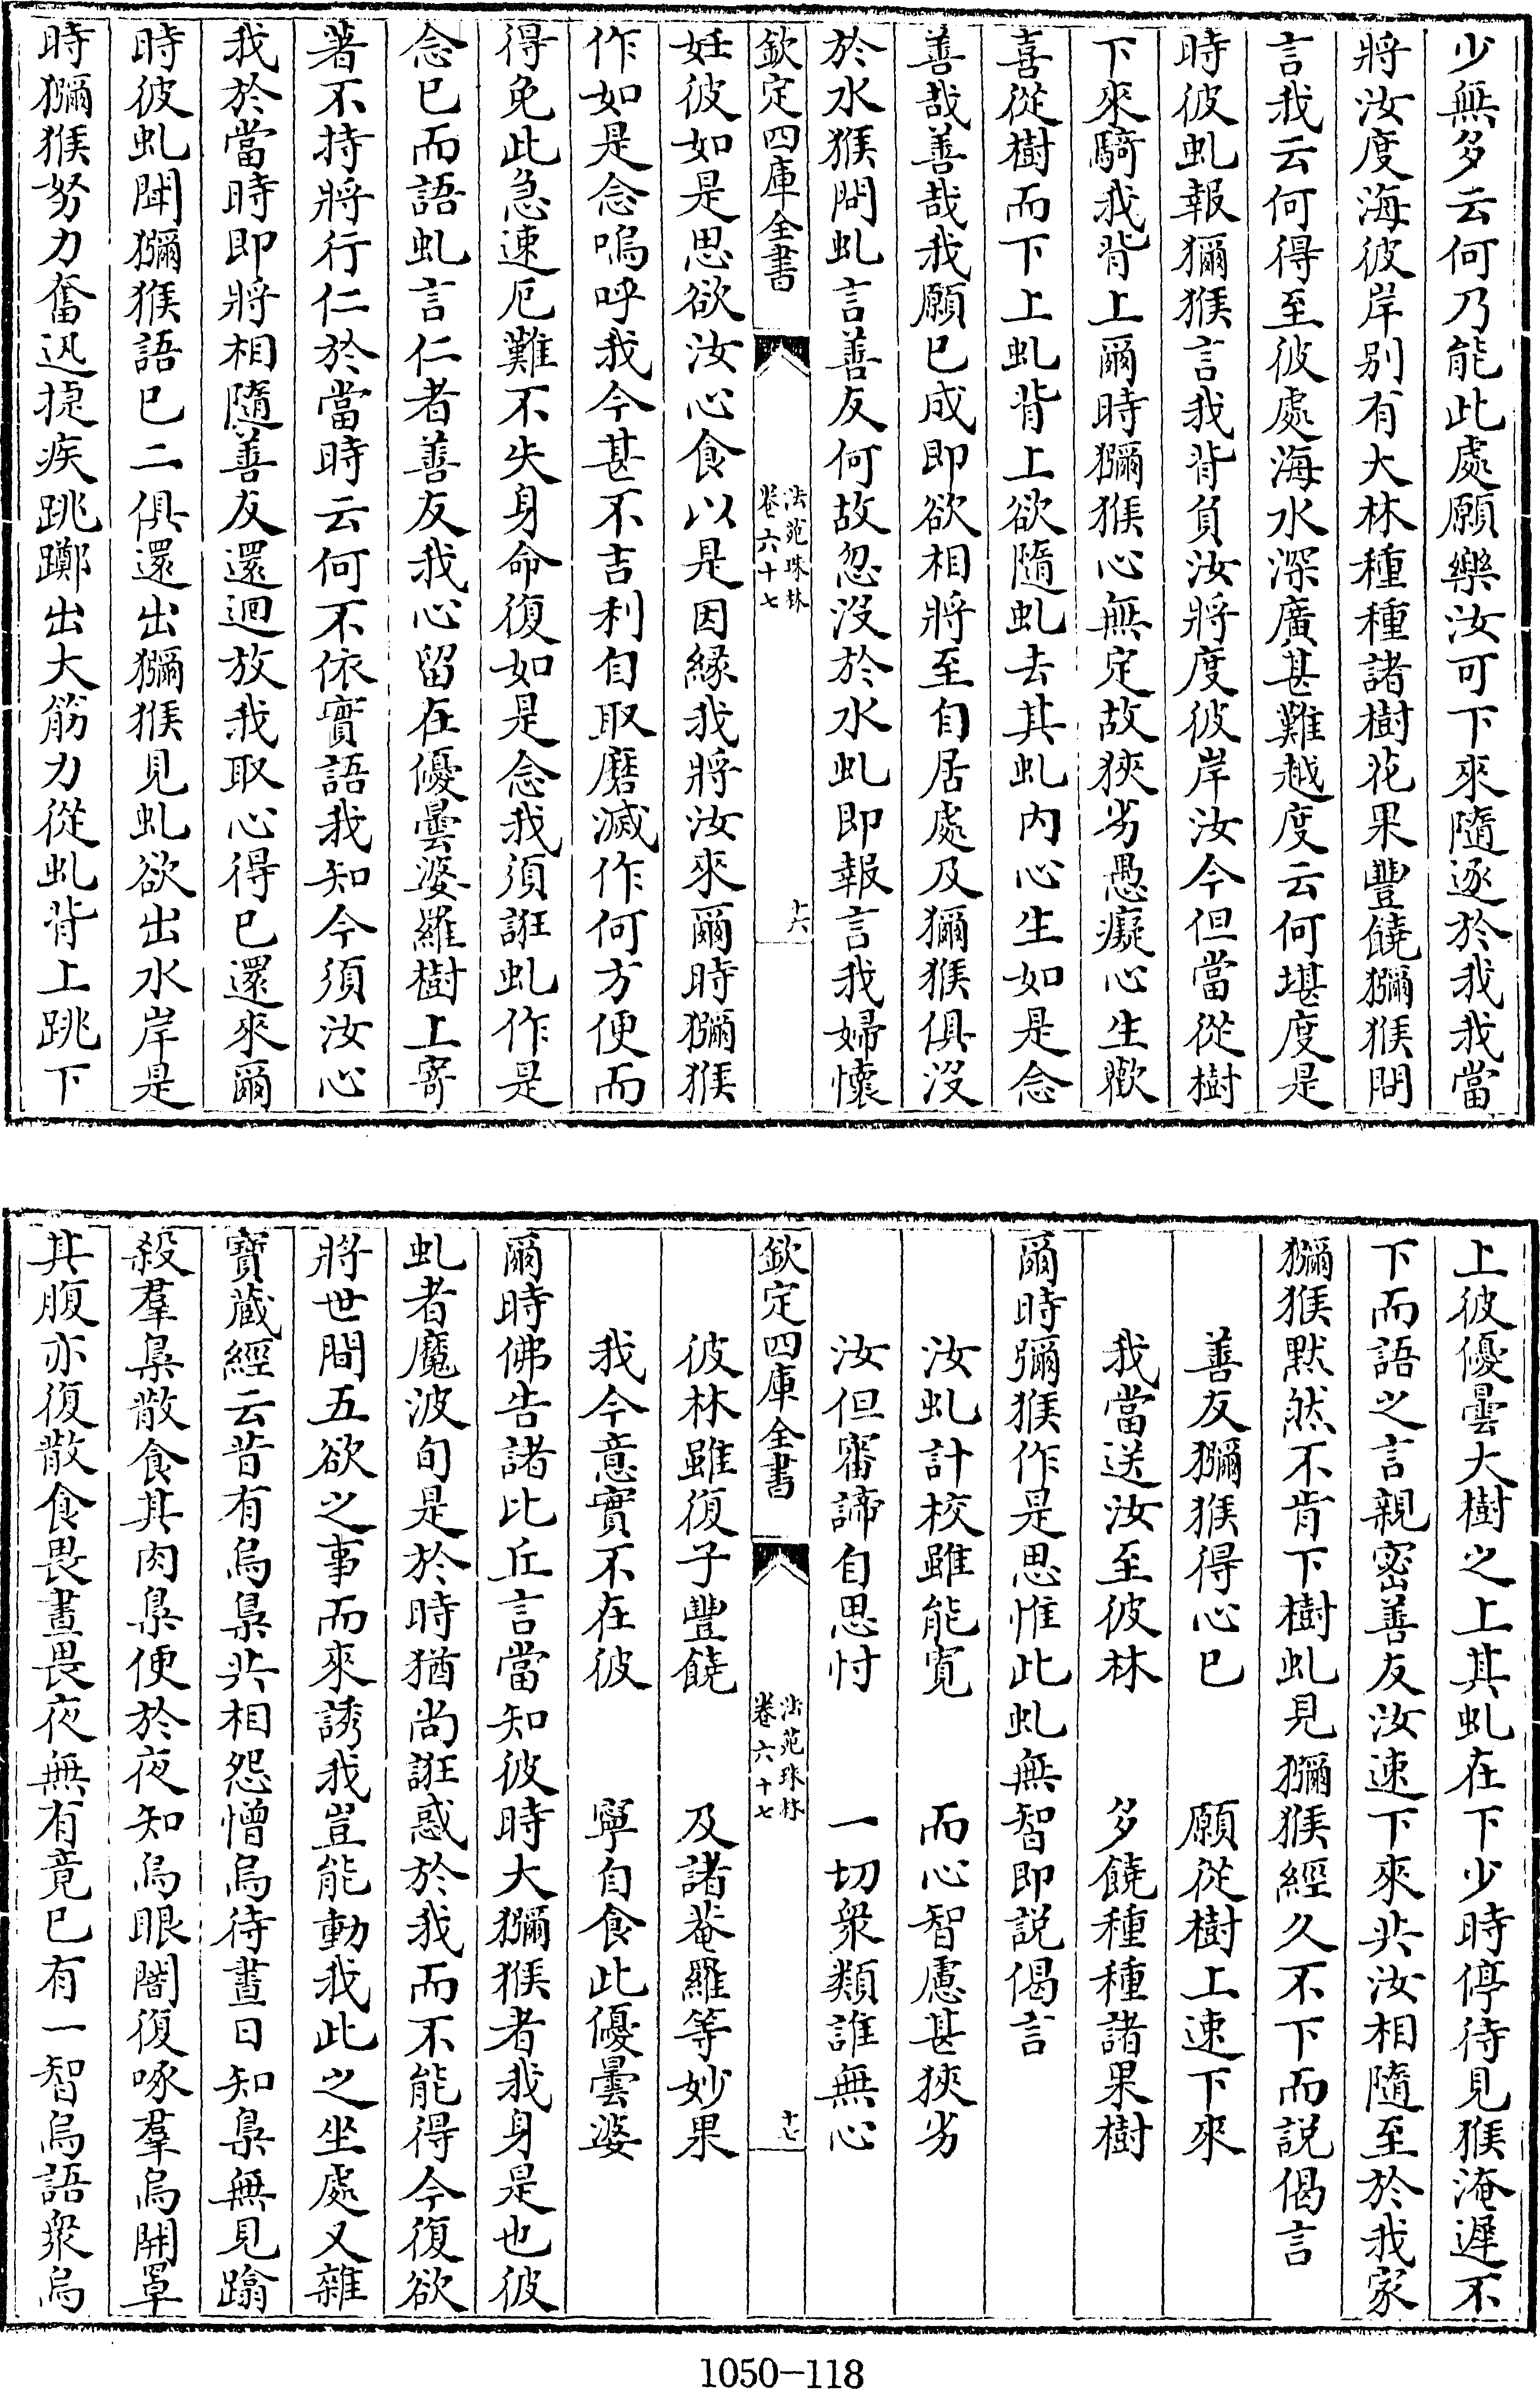 少無多云何乃能此處願樂汝可下來隨逐於我我當
將汝度海彼岸别有大林種種諸樹花果豐饒獼猴問
言我云何得至彼處海水深廣甚難越度云何堪度是
時彼虬報獼猴言我背負汝將度彼岸汝今但當從樹
下來騎我背上爾時獼猴心無定故狹劣愚癡心生歡
喜從樹而下上虬背上欲隨虬去其虬内心生如是念
善哉善哉我願已成即欲相將至自居處及獼猴俱沒
於水猴問虬言善友何故忽沒於水虬即報言我婦懷
欽定四庫全書
法苑珠林
卷六十七
十六
妊彼如是思欲汝心食以是因緣我將汝來爾時獼猴
作如是念嗚呼我今甚不吉利自取磨滅作何方便而
得免此急速厄難不失身命復如是念我須誑虬作是
念已而語虬言仁者善友我心留在優曇婆羅樹上寄
著不持將行仁於當時云何不依實語我知今須汝心
我於當時即將相隨善友還迴放我取心得已還來爾
時彼虬聞獼猴語已二俱還出獼猴見虬欲出水岸是
時獼猴努力奮迅捷疾跳躑出大筋力從虬背上跳下
上彼優曇大樹之上其虬在下少時停待見猴淹遲不
下而語之言親密善友汝速下來共汝相隨至於我家
獼猴默然不肯下樹虬見獼猴經久不下而説偈言
善友獼猴得心已　願從樹上速下來
我當送汝至彼林　多饒種種諸果樹
爾時彌猴作是思惟此虬無智即説偈言
汝虬計校雖能寛　而心智慮甚狹劣
汝但審諦自思忖　一切衆類誰無心
欽定四庫全書
法苑珠林
卷六十七
十七
彼林雖復子豐饒　及諸菴羅等妙果
我今意實不在彼　寧自食此優曇婆
爾時佛告諸比丘言當知彼時大獼猴者我身是也彼
虬者魔波旬是於時猶尚誑惑於我而不能得今復欲
將世間五欲之事而來誘我豈能動我此之坐處又雜
寶藏經云昔有烏梟共相怨憎烏待晝日知梟無見蹹
殺羣梟散食其肉梟便於夜知烏眼闇復啄羣烏開罩
其腹亦復散食畏晝畏夜無有竟已有一智烏語衆烏
1050-118